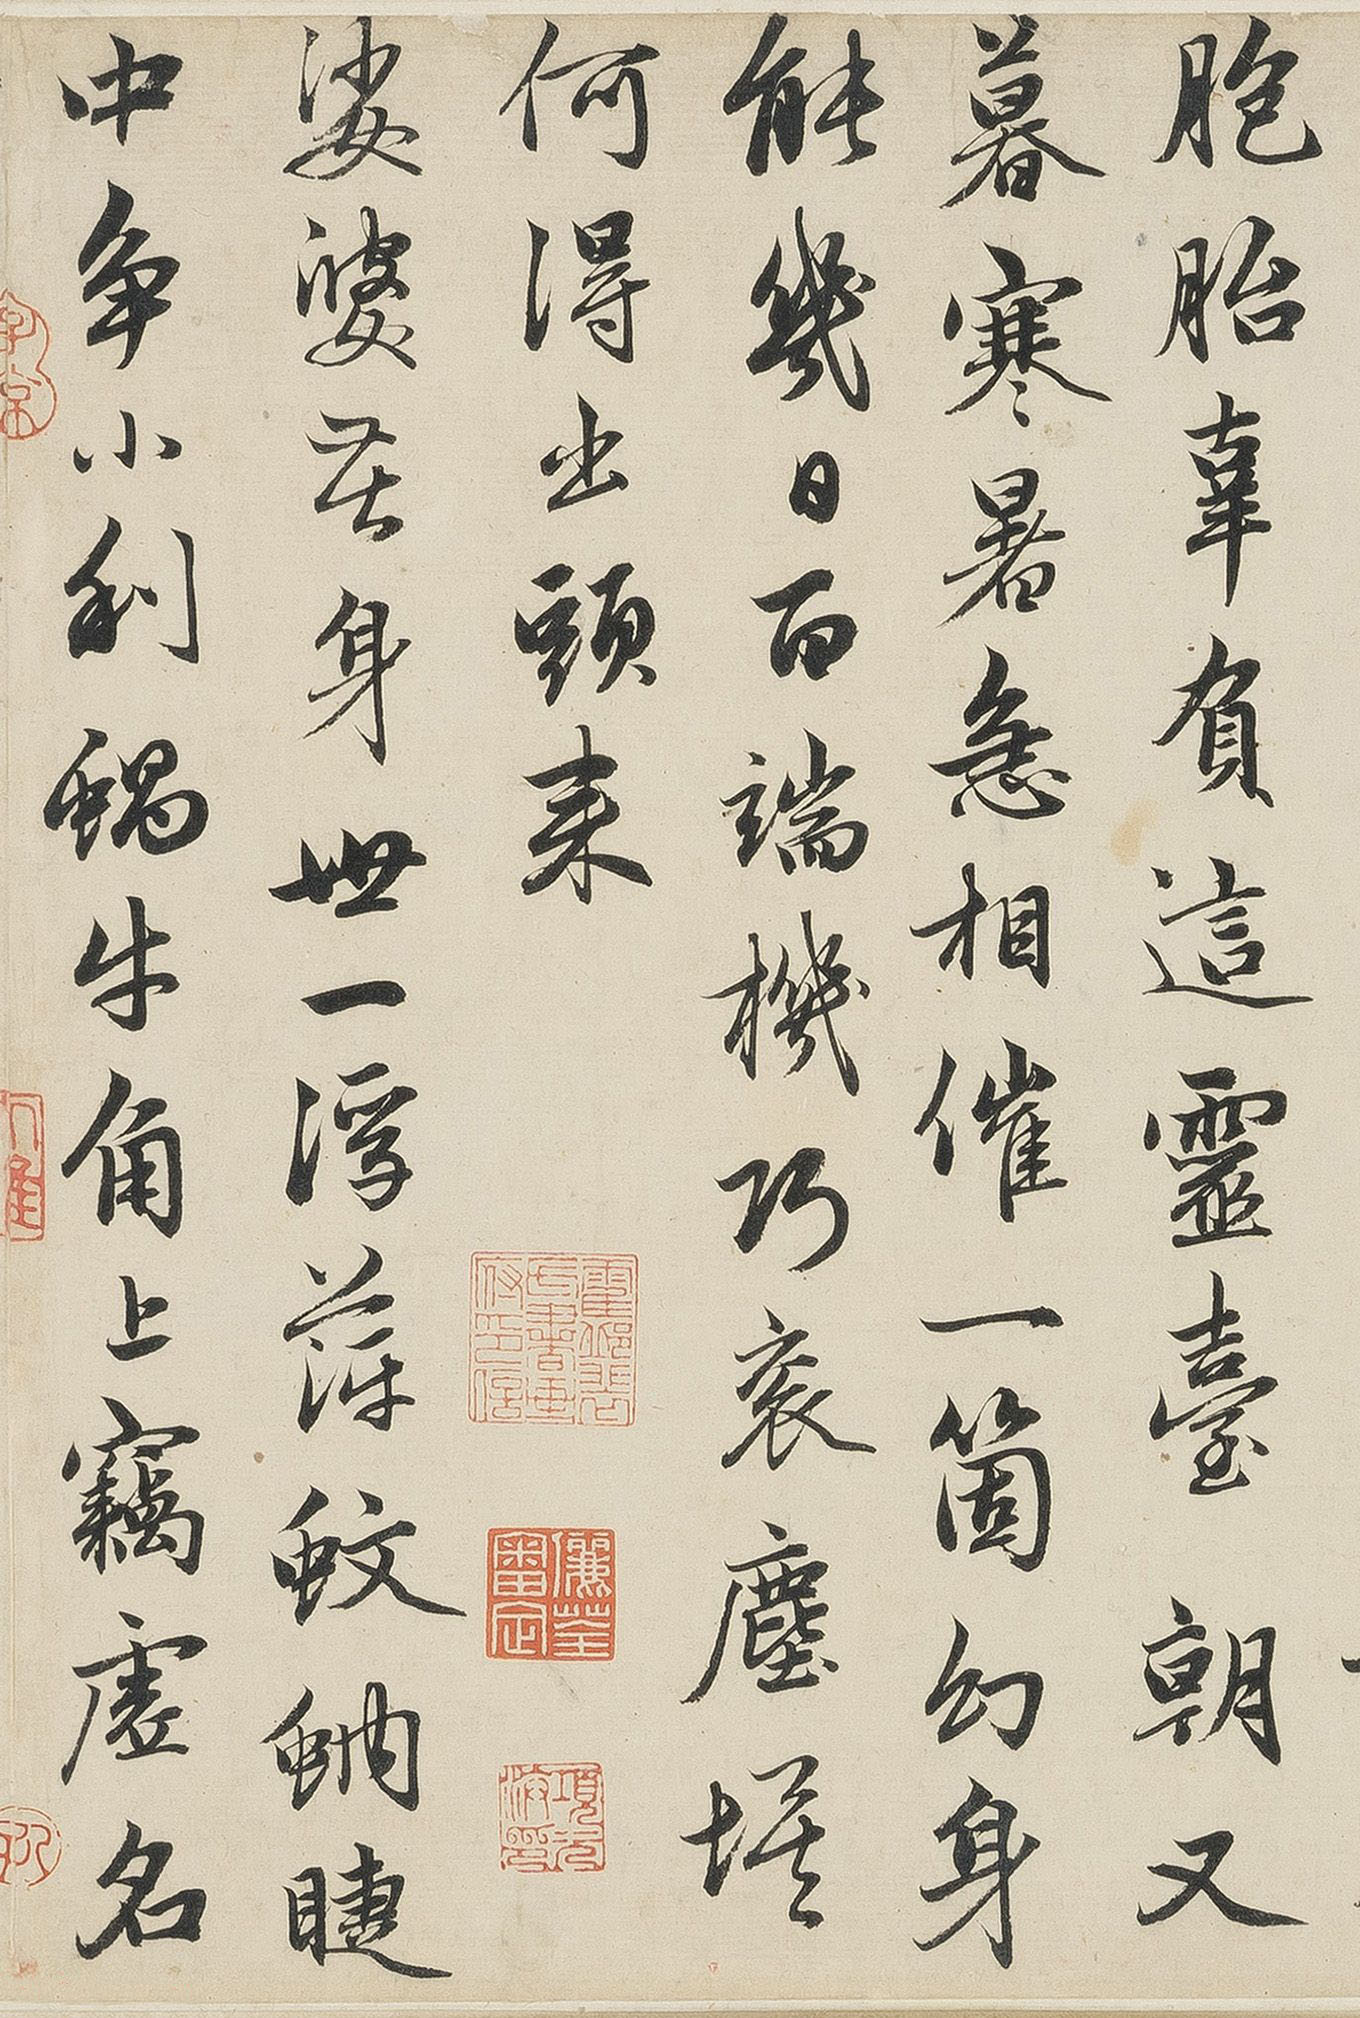 胞胎辜負這靈臺朝又
暮寒暑急相催一箇幻身
能幾日百端機巧衮塵埃
何得出頭来
娑婆苦身世一浮萍蚊蚋睫
中争小利蝸牛角上竊虚名